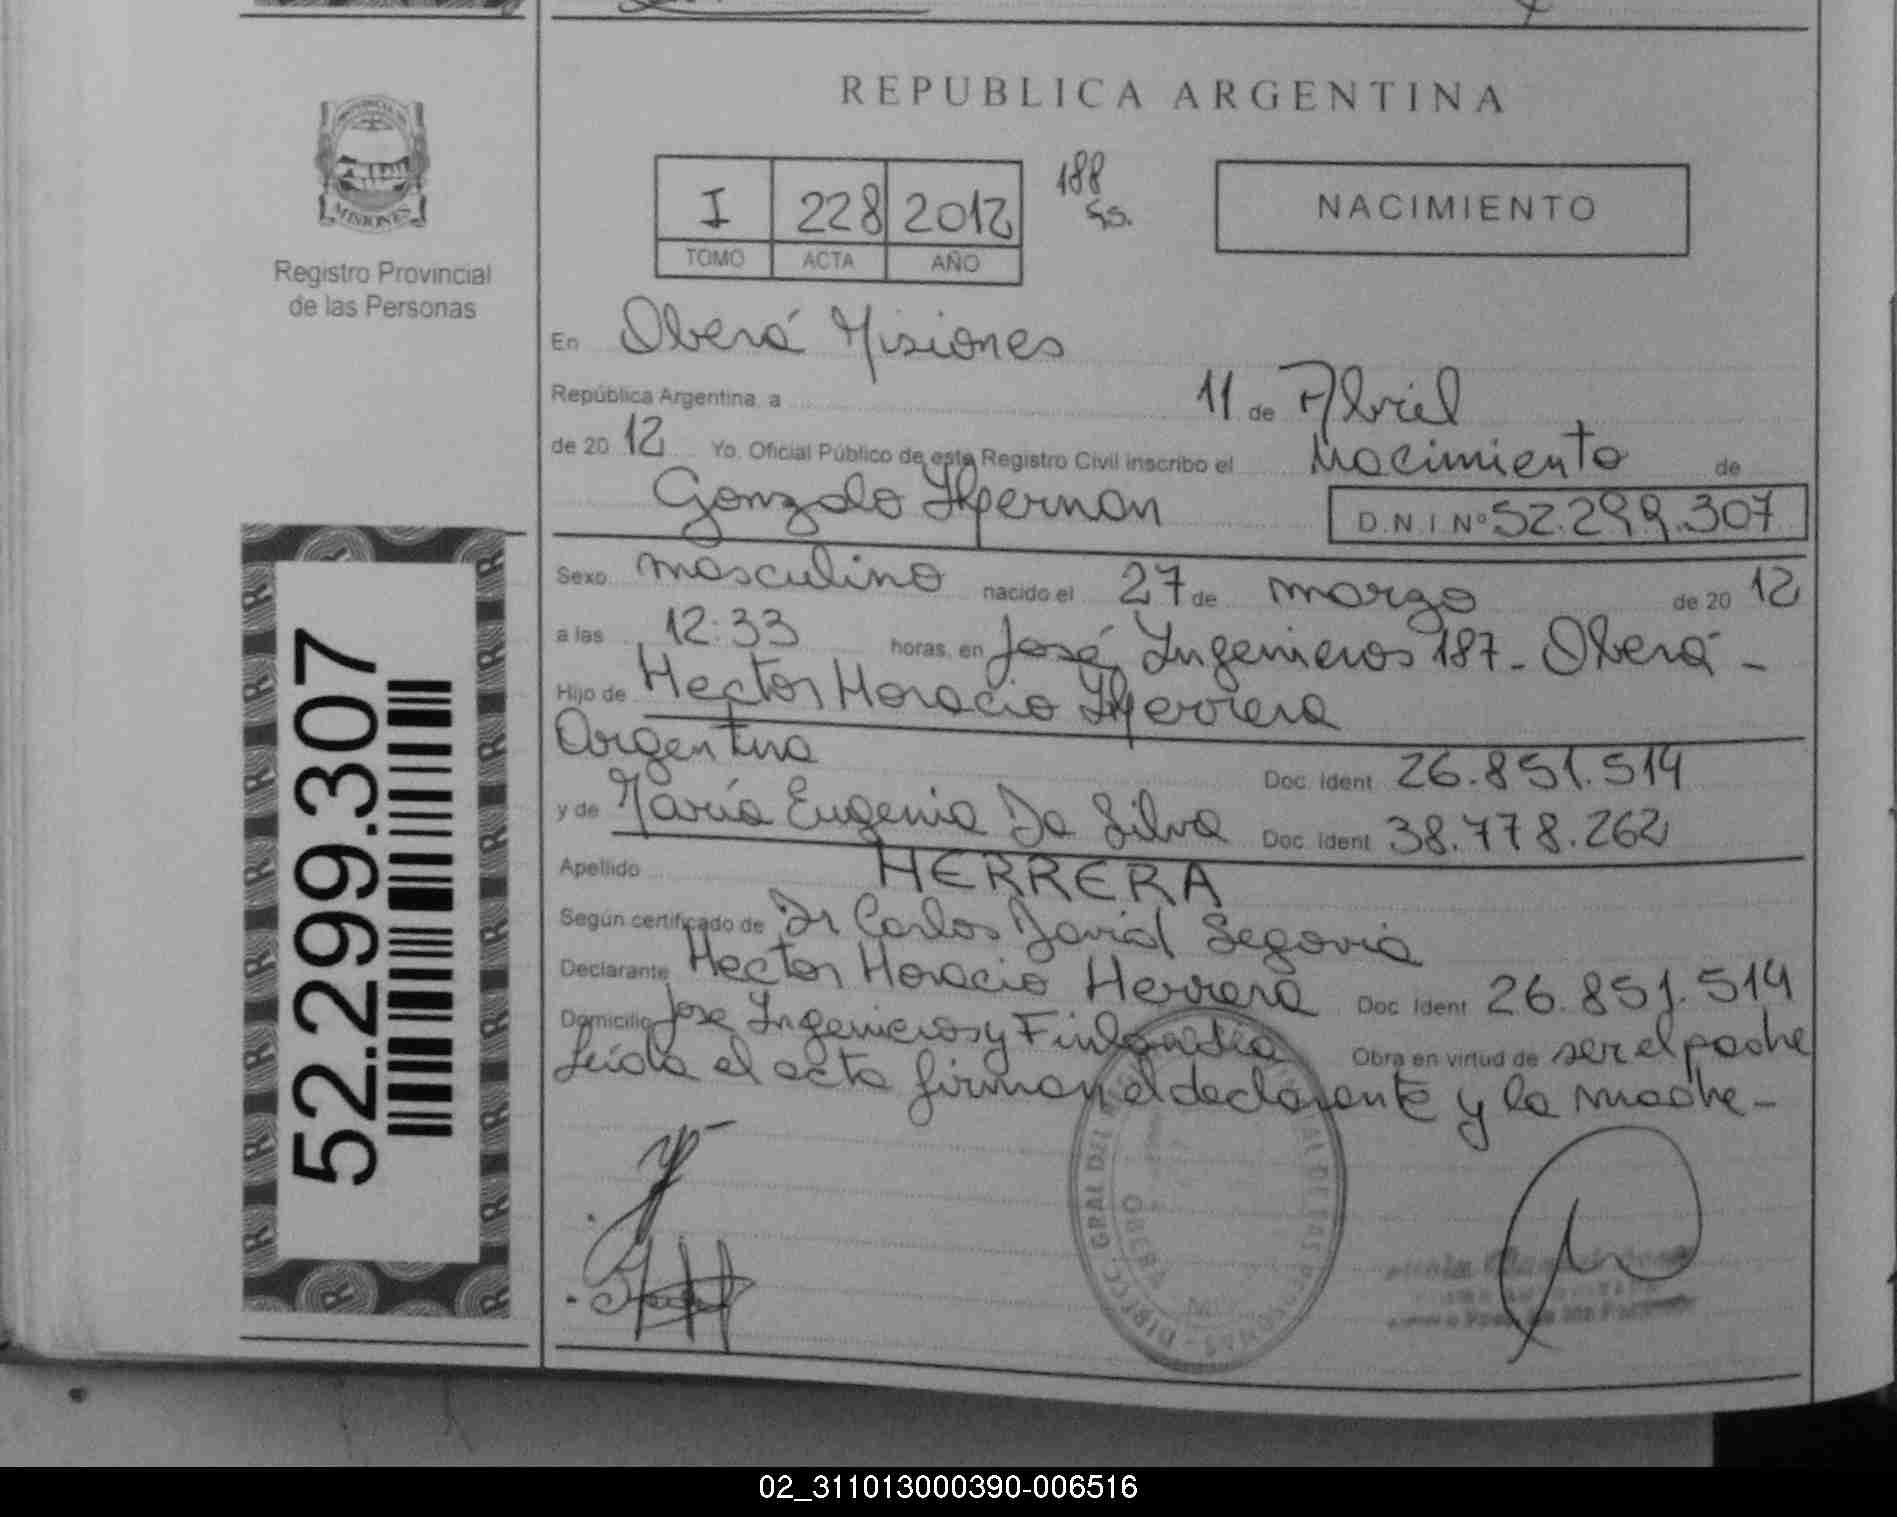 REPUBLICA ARGENTINA
MISIONES
Registro Provincial
de las Personas
I 228 2012
TOMO ACTA AÑO
188
NACIMIENTO
En Oberá Misiones
República Argentina, a 11 de Abriel
de 20 12 Yo, Oficial Público de este Registro Civil inscribo el Nacimiento de
Gonzalo Hernan D.N.I Nº 52.299.307
Sexo masculino nacido el 27 de marzo de 20 12
a las 12:33 horas, en José Ingenieros 187 - Oberá -
Hijo de Hector Horacio Herrera
Argentina Doc. Ident 26.851.514
y de María Eugenia Da Silva Doc. Ident 38.778.262
Apellido HERRERA
Según certificado de Dr Carlos David Segovia
Declarante Hector Horacio Herrera Doc. Ident 26.851.514
Domicilio Jose Ingenieros y Finlandia Obra en virtud de ser el padre
Leída el acta firman el declarante y la madre -
52.299.307
OBERA
02_311013000390-006516